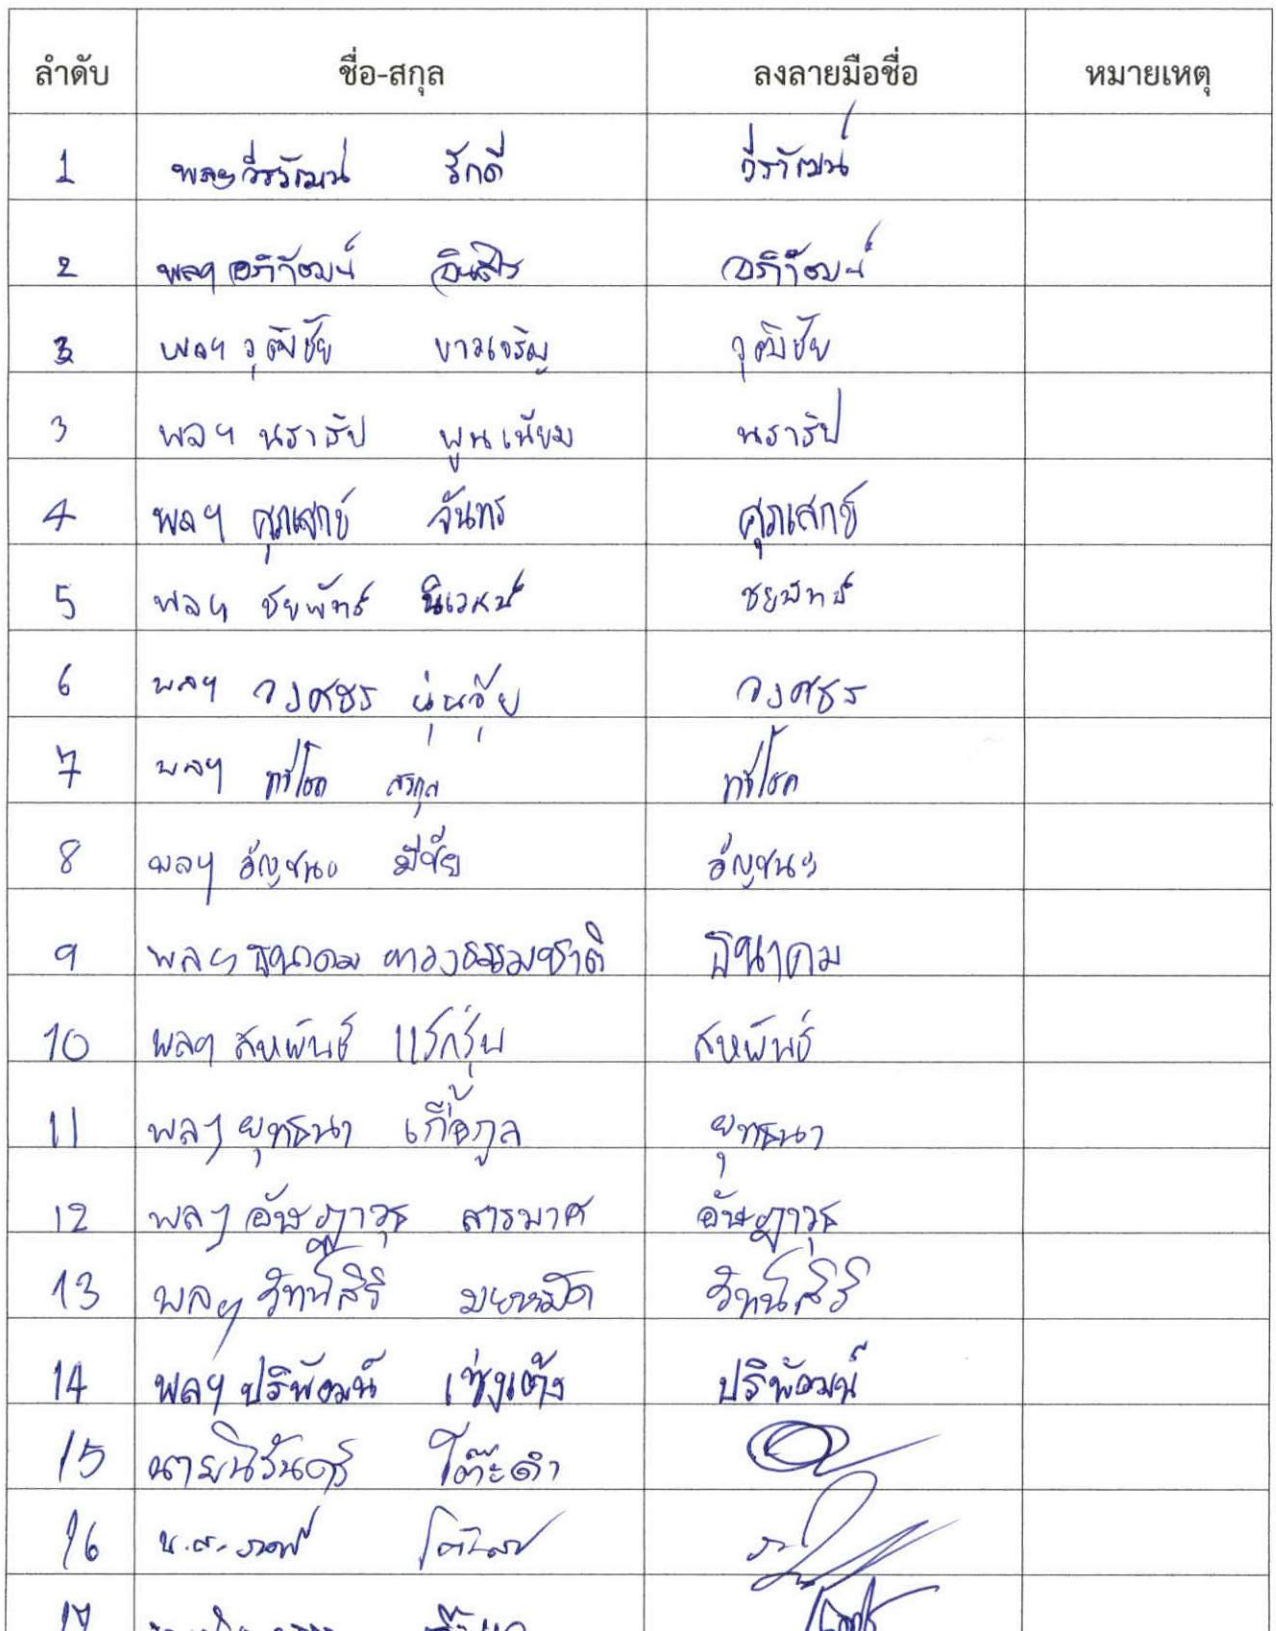 ลำดับ ชื่อ-สกุล ลงลายมือชื่อ หมายเหตุ
1 พลฯ วีรวัฒน์ รักดี วีรวัฒน์
2 พลฯ อภิวัฒน์ อภิวัฒน์
3 พลฯ วุฒิชัย ขาวเจริญ วุฒิชัย
3 พลฯ นราธิป พูนเนียม นราธิป
4 พลฯ ศุภเสกข์ จันทร ศุภเสกข์
5 พลฯ ชัยพัทธ์ นิเวศน์ ชัยพัทธ์
6 พลฯ วงศธร นุ่นจุ้ย วงศธร
7 พลฯ ทวีโชค ทวีโชค
8 พลฯ อัญชนะ มีชัย อัญชนะ
9 พลฯ ธนาคม ทองธรรมชาติ ธนาคม
10 พลฯ สหพันธ์ แร่กรุ่น สหพันธ์
11 พลฯ ยุทธนา เกื้อกูล ยุทธนา
12 พลฯ อัษฎาวุธ สารมาศ อัษฎาวุธ
13 พลฯ วิทน์สิริ มะหมัด วิทน์สิริ
14 พลฯ ปริพัฒน์ เซ่งเต้ง ปริพัฒน์
15 นายนิรันดร์ โต๊ะดำ
16 น.ส.
17